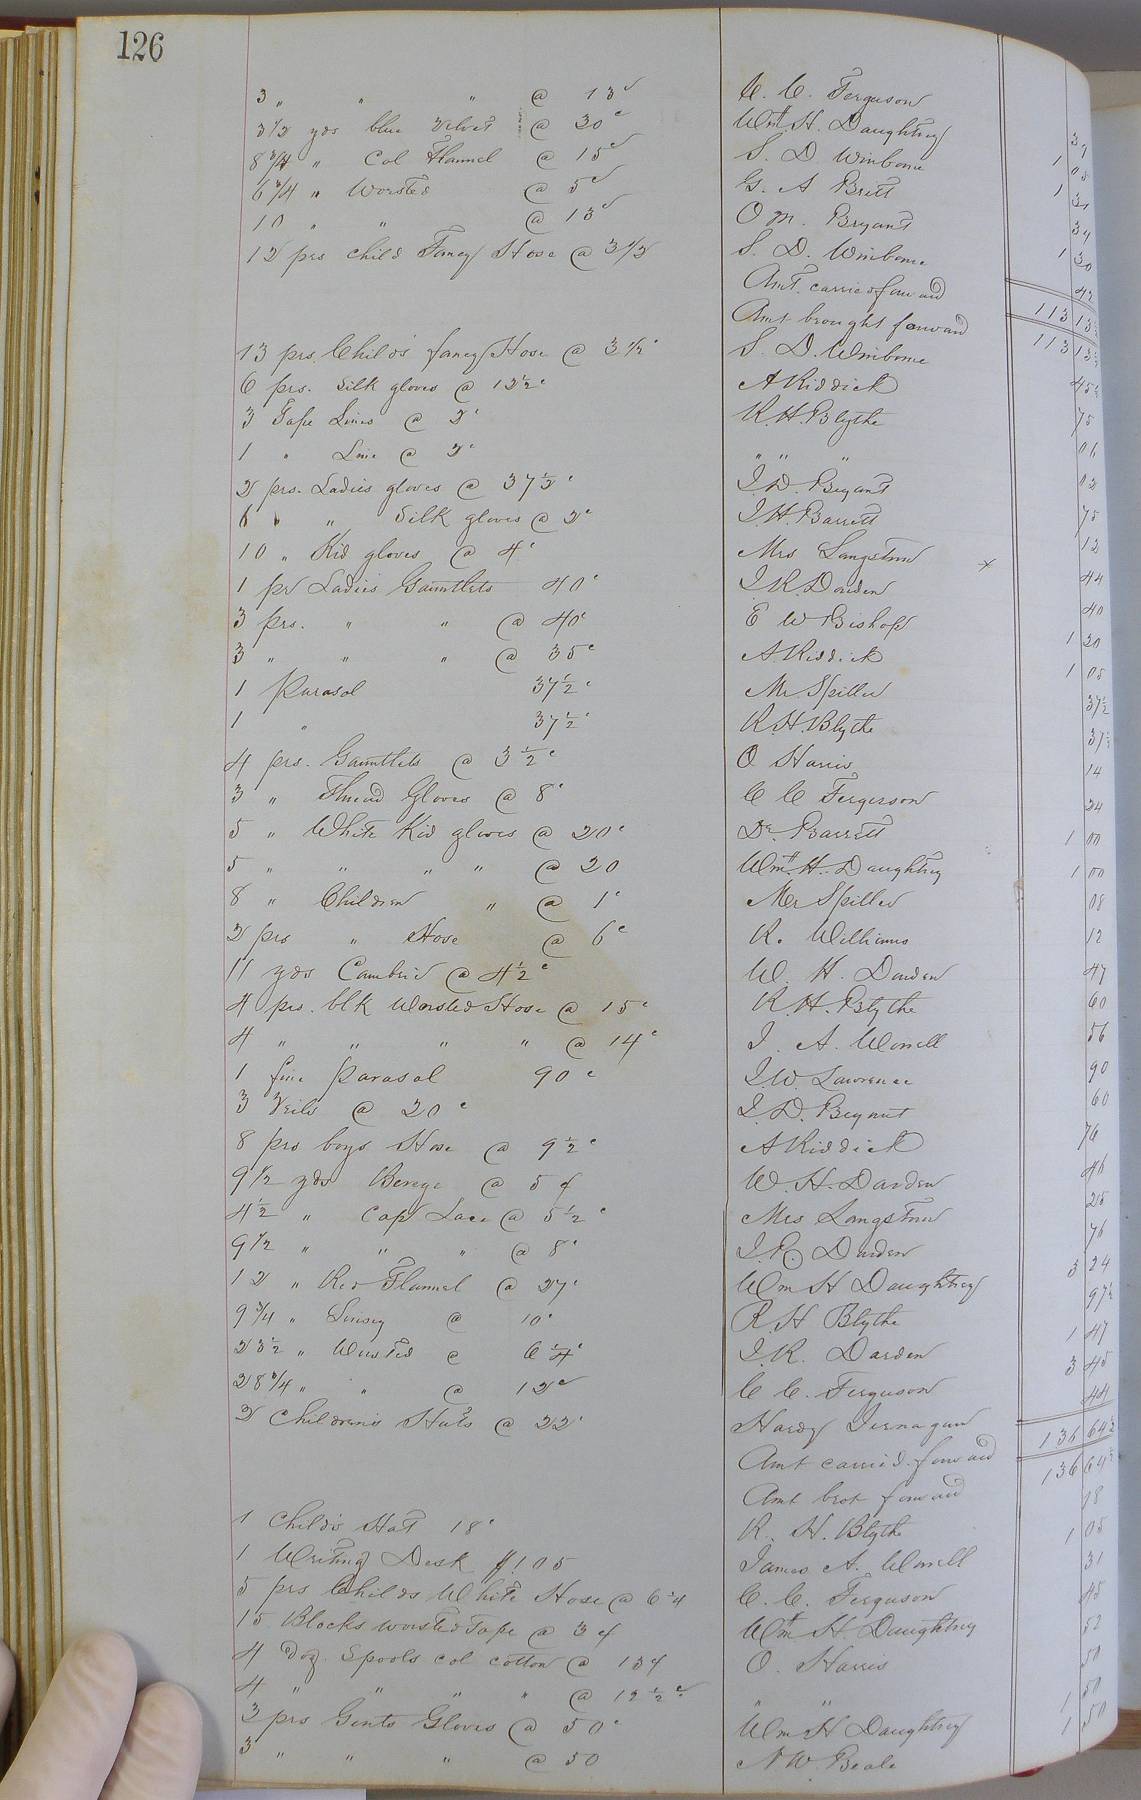 126
3 " " " @ 13c C. C. Ferguson 39
3 1/2 yds blue Velvet @ 30c Wm H. Daughtrey 1 05
8 3/4 " Col Flannel @ 15c S. D. Winborne 1 31
6 3/4 " Worsted @ 5c G. A Britt 34
10 " " @ 13c O M. Bryant 1 30
12 prs child Fancy Hose @ 3 1/2 S. D. Winborne 42
Amt. carried forward 113 13 1/2
Amt brought forward 113 13 1/2
13 prs. Childs fancy Hose @ 3 1/2c S. D. Winborne 45 1/2
6 prs. Silk gloves @ 12 1/2c A Riddick 75
3 Tape Lines @ 2c R. H. Blythe 06
1 " Line @ 2c " " " 02
2 prs. Ladies gloves @ 37 1/2c J. D. Bryant 75
6 " " Silk gloves @ 2c J. H. Barrett 12
10 " Kid gloves @ 4c Mrs Langston x 44
1 pr Ladies Gauntlets 40c J. R. Darden 40
3 prs. " " @ 40c E W Bishop 1 20
3 " " " @ 35c A. Riddick 1 05
1 Parasol 37 1/2c Mr Spiller 37 1/2
1 " 37 1/2c R. H. Blythe 37 1/2
4 prs. Gauntlets @ 3 1/2c O Harris 14
3 " Thread Gloves @ 8c C C Fergerson 24
5 " White Kid gloves @ 20c Dr. Barrett 1 00
5 " " " " @ 20 Wm H. Daughtrey 1 00
8 " Children " @ 1c Mr Spiller 08
2 prs " Hose @ 6c R. Williams 12
11 yds Cambric @ 4 1/2c W. H. Darden 47
4 prs. blk Worsted Hose @ 15c R. H. Blythe 60
4 " " " " @ 14c J. A. Worrell 56
1 fine Parasol 90c J. W. Lawrence 90
3 Veils @ 20c J. D. Bryant 60
8 prs boys Hose @ 9 1/2c A Riddick 76
9 1/2 yds Berege @ 5¢ W. H. Darden 46
4 1/2 " Cap Lace @ 5 1/2c Mrs Langston 25
9 1/2 " " " @ 8c J. R. Darden 76
12 " Red Flannel @ 27c Wm H Daughtrey 3 24
9 3/4 " Linsey @ 10c R. H Blythe 97 1/2
23 1/2 " Worsted @ 6 1/4c J. R. Darden 1 47
28 3/4 " " @ 12c C C. Ferguson 3 45
2 Children's Hats @ 22c Hardy Jernagan 44
Amt carried forward 136 64 1/2
Amt brot forward 136 64 1/2
1 Child's Hat 18c R. H. Blythe 18
1 Writing Desk $1.05 James A. Worrell 1 05
5 prs Childs White Hose @ 6 1/4 C. C. Ferguson 31
15 Blocks worsted Tape @ 3¢ Wm H. Daughtrey 45
4 doz. Spools col cotton @ 13¢ O. Harris 52
4 " " " " @ 12 1/2c " " 50
3 prs Gents Gloves @ 50c Wm H Daughtrey 1 50
3 " " " @ 50 N W. Beale 1 50